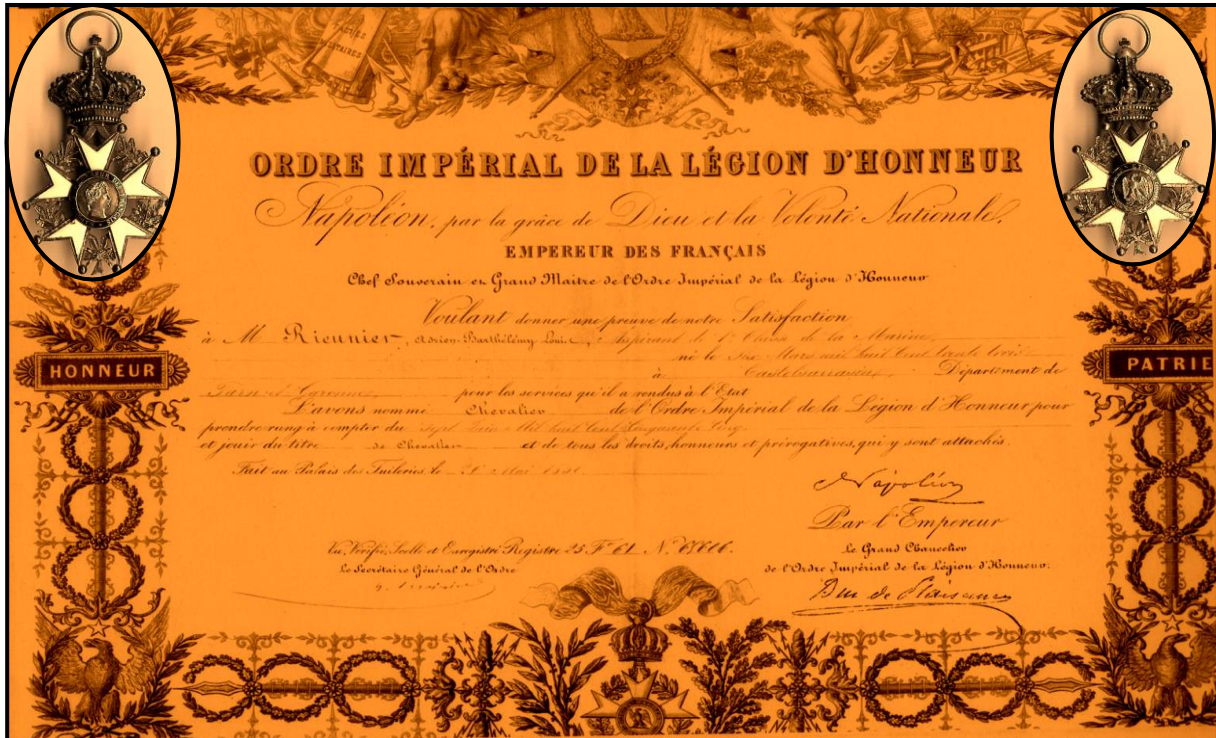 ACTES MILITAIRES
ORDRE IMPÉRIAL DE LA LÉGION D'HONNEUR
Napoléon, par la grâce de Dieu et la Volonté Nationale,
EMPEREUR DES FRANÇAIS
Chef Souverain et Grand Maitre de l'Ordre Impérial de la Légion d'Honneur
Voulant donner une preuve de notre Satisfaction
à M Rieunier, Adrien Barthélémy Louis, Aspirant de 1e Classe de la Marine,
né le Six Mars mil huit Cent trente trois
à Castelsarrasin, Département de
Tarn et Garonne, pour les services qu'il a rendus à l'Etat
L'avons nommé Chevalier de l'Ordre Impérial de la Légion d'Honneur pour
prendre rang à compter du Mil huit Cent Cinquante Cinq
et jouir du titre de Chevalier et de tous les droits, honneurs et prérogatives, qui y sont attachés.
Fait au Palais des Tuileries, le Mai
HONNEUR
PATRIE
Napoléon
Par l'Empereur
Vu, Vérifié, Scellé et Enregistré Registre 25 F° 61 N° 68606.
Le Secrétaire Général de l'Ordre
Le Grand Chancelier
de l'Ordre Impérial de la Légion d'Honneur:
Duc de Plaisance